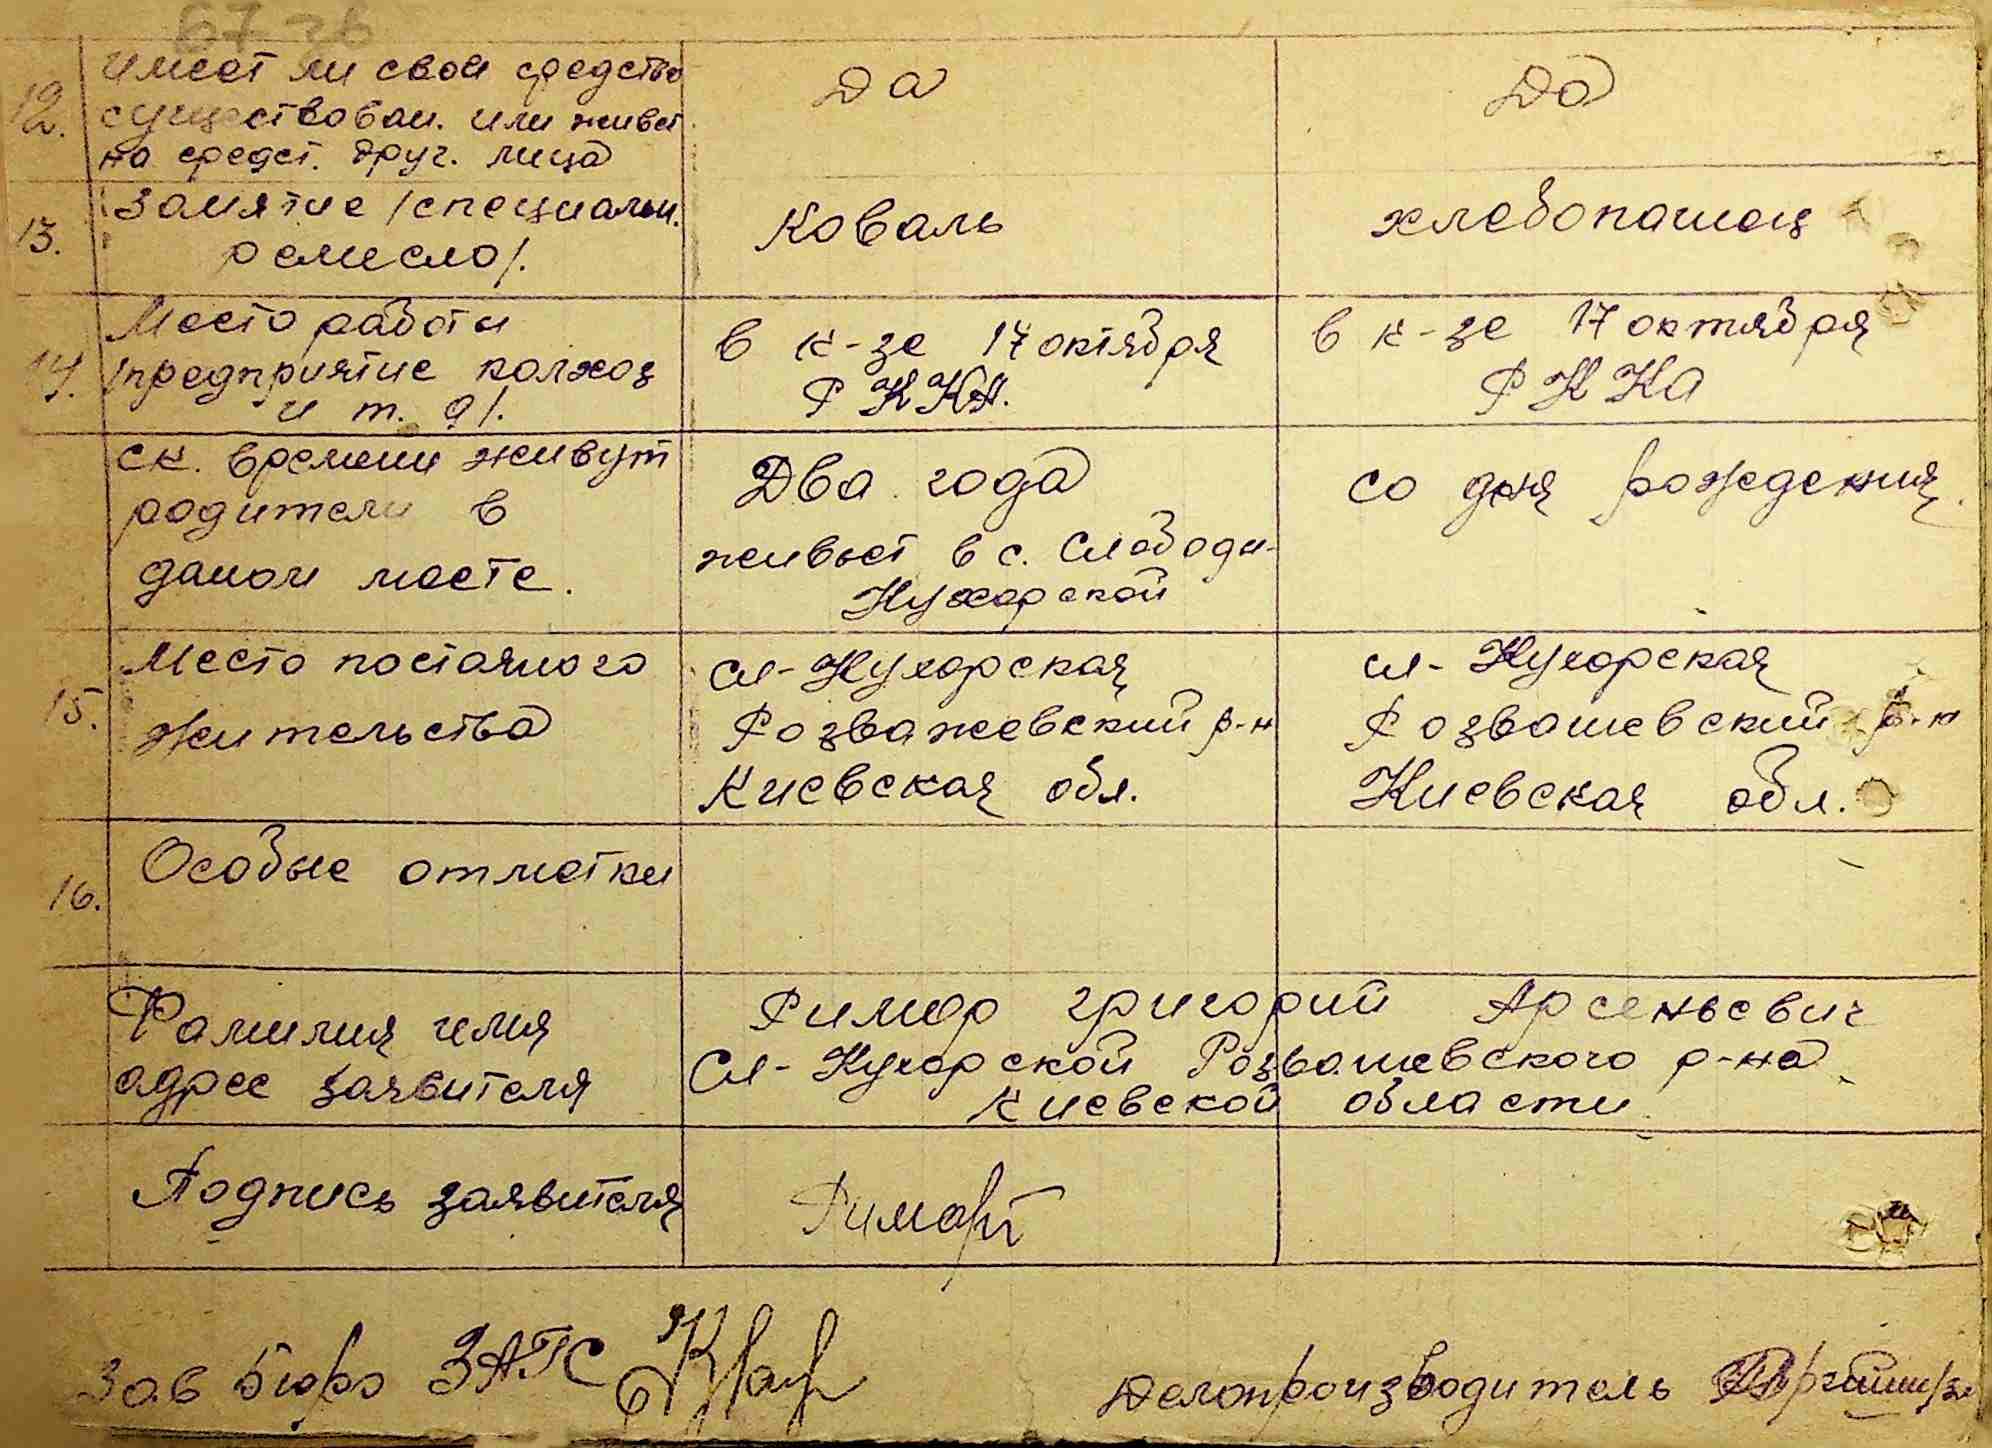 12. имеет ли свои средства
существован. или живет
на средст. друг. лица
Да
Да
13. Занятие /специальн.
ремесло/.
Коваль
хлебопашец
14. Место работи
/предприятие колхоз
и т. д/.
в к-зе 17 октября
РККА.
в к-зе 17 октября
РККА
ск. времени живут
родители в
даном месте.
Два года
живьет в с. Слободи-
Кухарской
со дня рождения
15. Место постояного
жительства
сл-Кухарская
Розважевский р-н
Киевская обл.
сл-Кухарская
Розвашевский р-н
Киевская обл.
16. Особые отметки
Фамилия имя
адрес заявителя
Римар Григорий Арсеньевич
Сл-Кухарской Розвашевского р-на
Киевской области
Подпись заявителя
Римар
Зав Бюро ЗАГС
Делопроизводитель